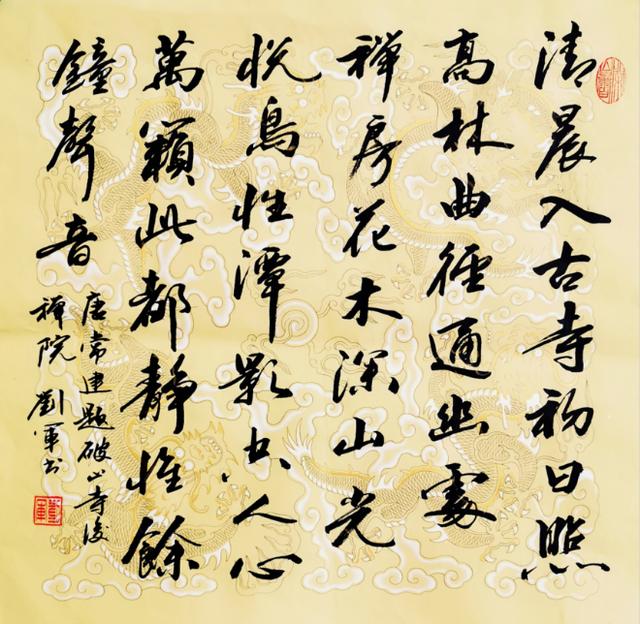 清晨入古寺初日照
高林曲徑通幽處
禪房花木深山光
悦鳥性潭影空人心
萬籟此都靜惟餘
鐘聲音
唐常建題破山寺後
禪院 劉軍书